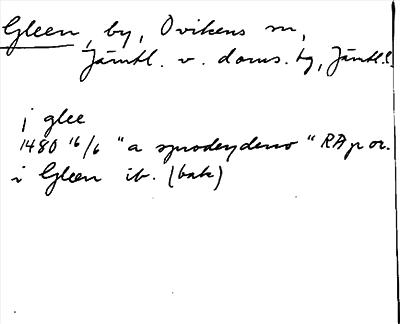 Gleen, by, Ovikens sn,
Jämtl. v. doms. tg, Jämtl. l.
j glee
1480 16/6 "a sprodeydenо" RAp or.
i Gleen ib. (bak)